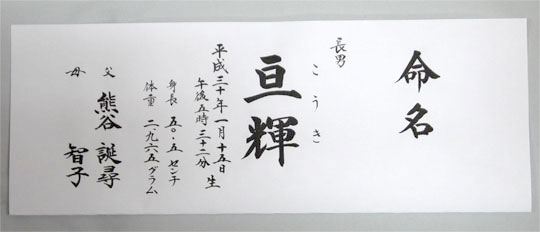 命名
長男
こうき
亘輝
平成三十年一月十五日
午後五時三十二分 生
身長 五〇.五 センチ
体重 二.九六五グラム
父 熊谷 誕尋
母 智子